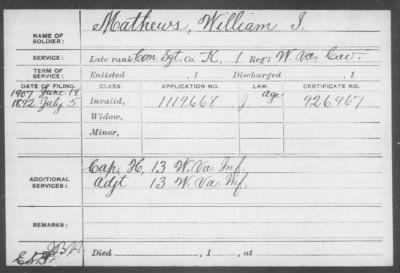 Mathews, William I.
NAME OF SOLDIER:
SERVICE: Late rank Com Sgt, Co. K, 1 Reg't W. Va. Cav.
TERM OF SERVICE: Enlisted , 1 Discharged , 1
DATE OF FILING. CLASS. APPLICATION NO. LAW. CERTIFICATE NO.
1907 June 18 age
1892 July 5 Invalid, 1119668 J 926967
Widow,
Minor,
Cap. H, 13 W. Va. Inf.
ADDITIONAL SERVICES: Adjt 13 W. Va. Inf.
REMARKS:
Died , 1 , at